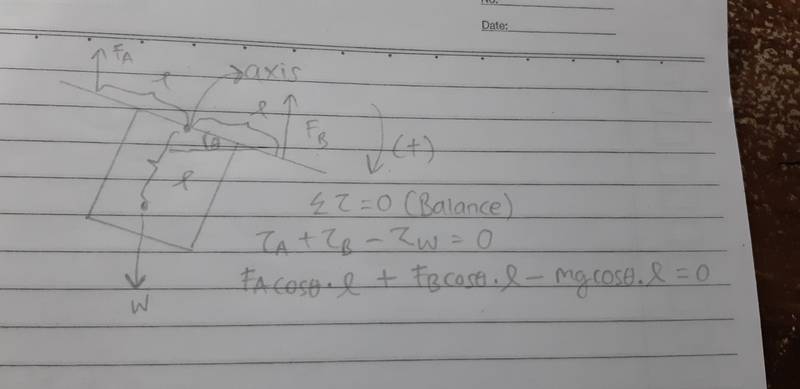 No.
Date:
F_A
l
axis
l
F_B
θ
(+)
l
Στ=0 (Balance)
τ_A + τ_B - τ_W = 0
W
F_A cosθ·l + F_B cosθ·l - mg cosθ·l = 0